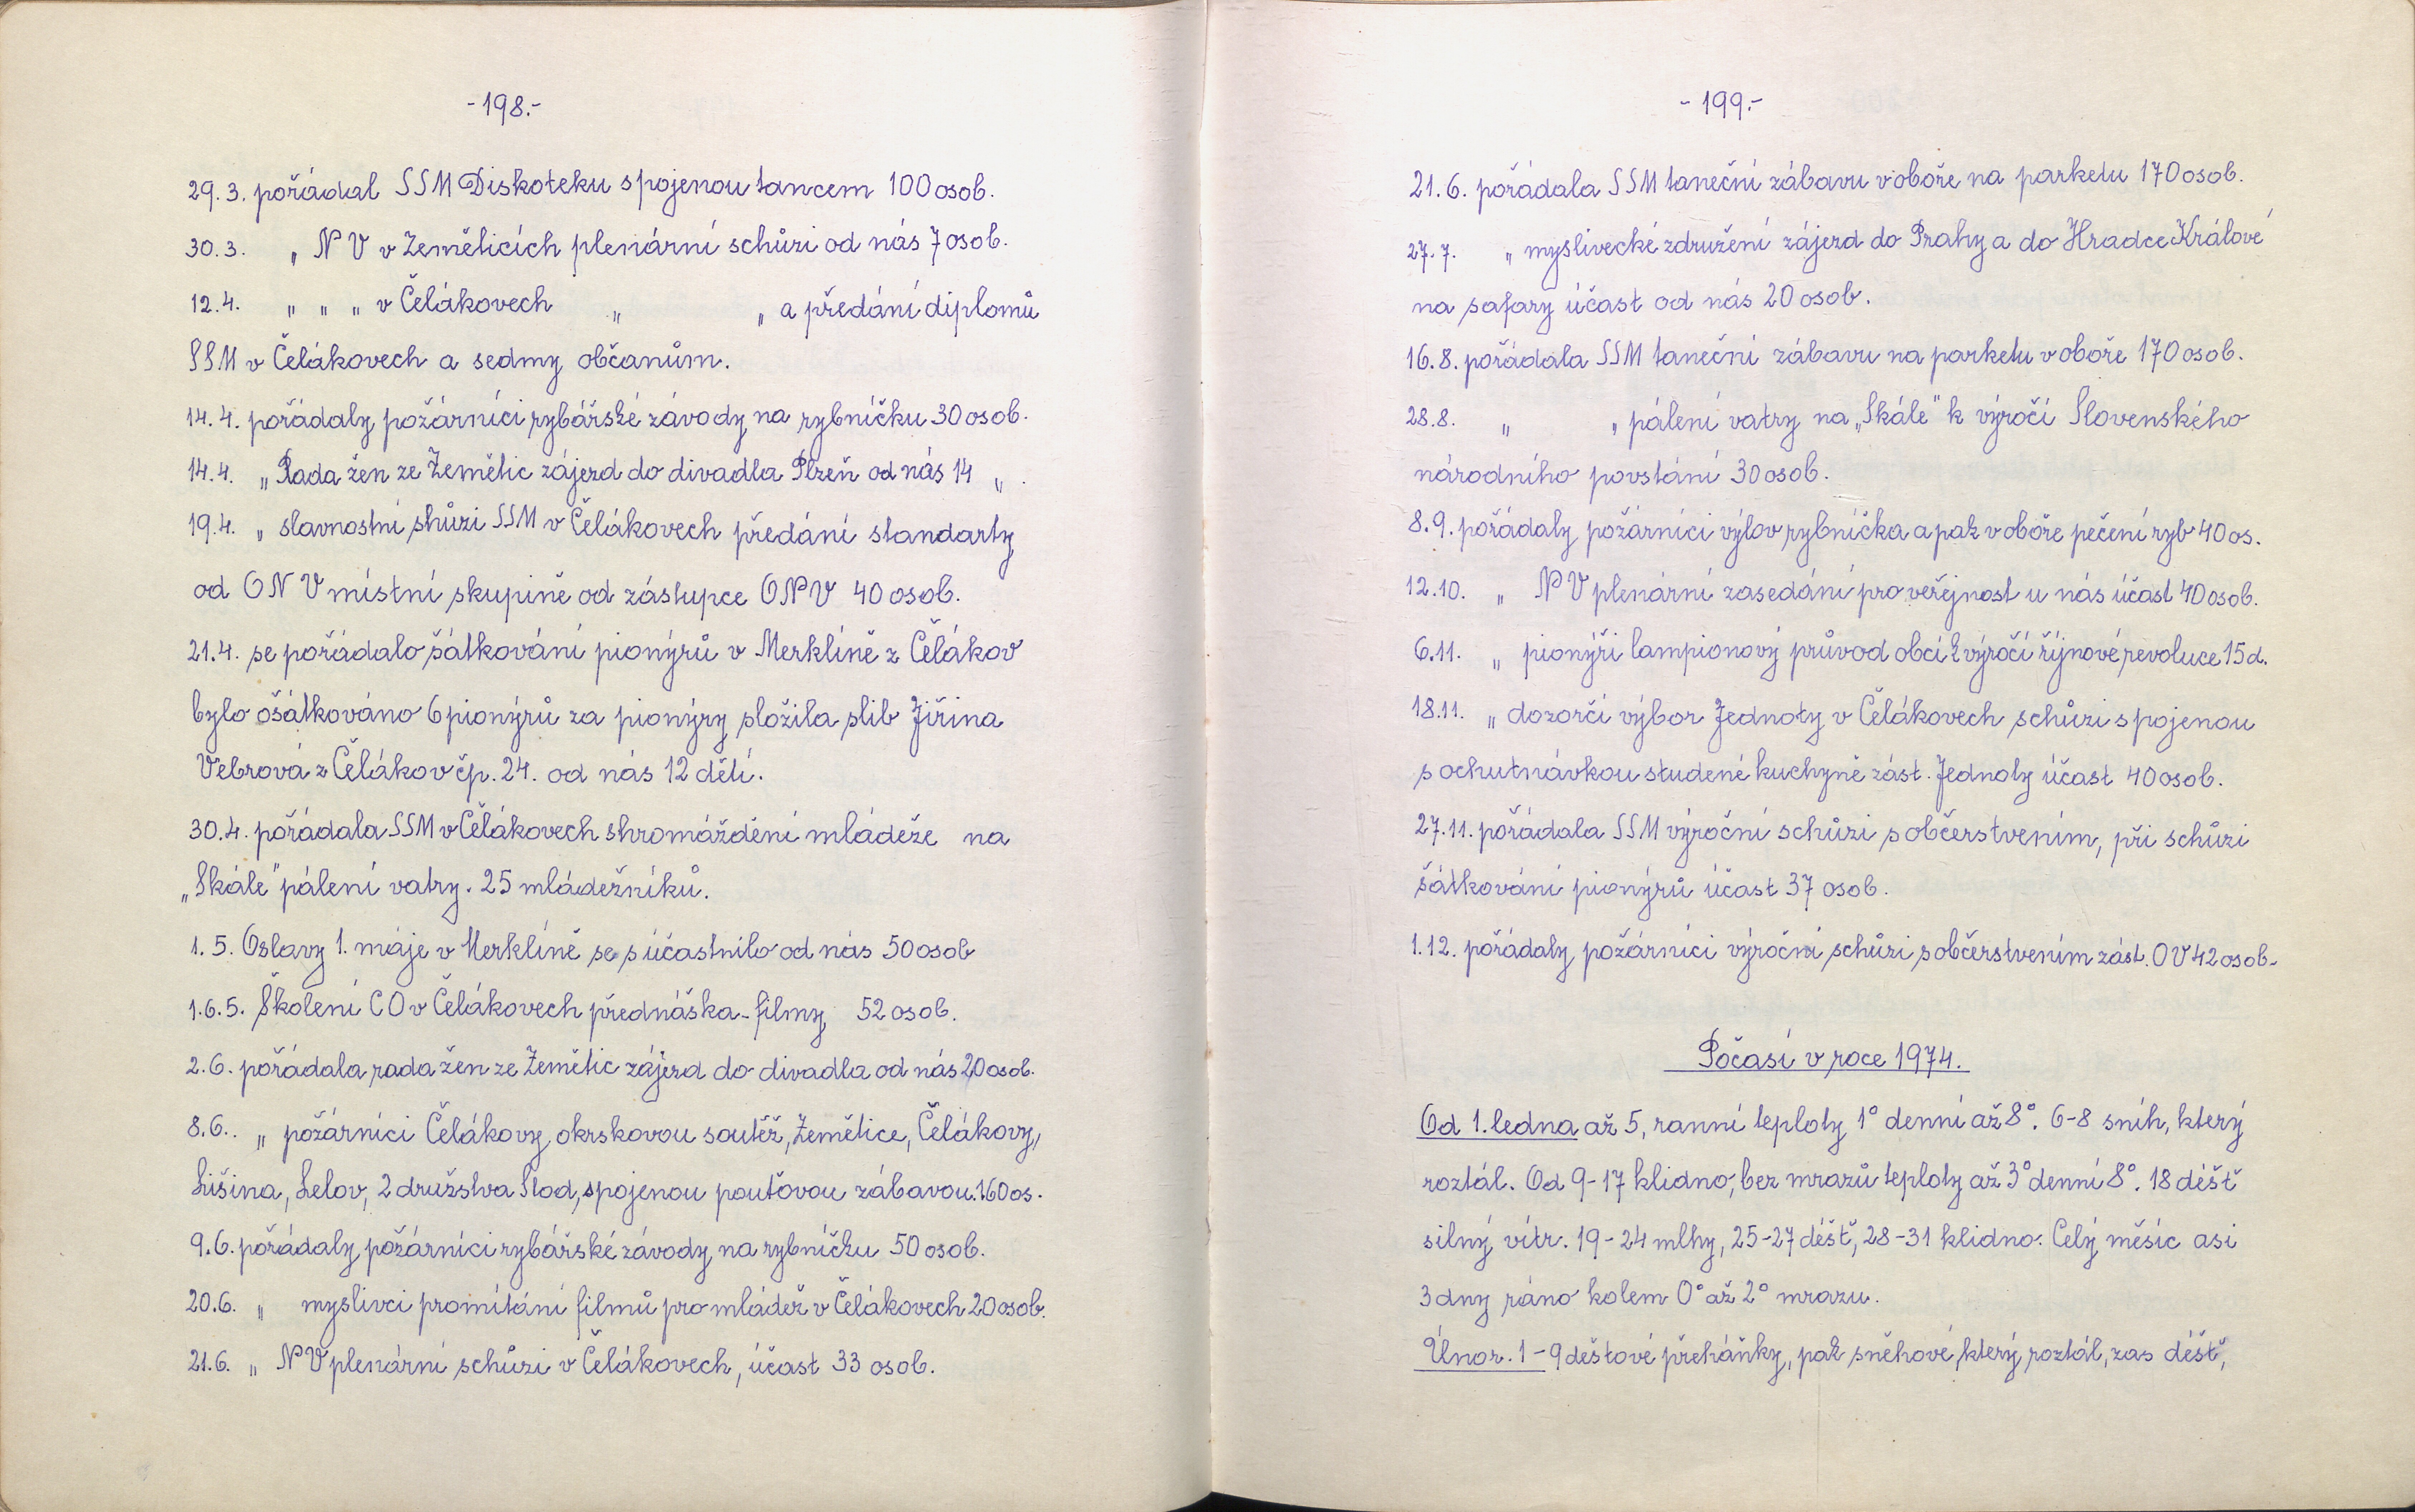 -198.-
29.3. pořádal SSM Diskoteku spojenou tancem 100 osob.
30.3. „ NV v Zeměticích plenární schůzi od nás 7 osob.
12.4. „ „ „ v Čelákovech „ „ a předání diplomů
SSM v Čelákovech a sedmy občanům.
14.4. pořádaly požárníci rybářské závody na rybníčku 30 osob.
14.4. „ Rada žen ze Zemětic zájezd do divadla Plzeň od nás 14 „ .
19.4. „ slavnostní shůzi SSM v Čelákovech předání standarty
od ONV místní skupině od zástupce ONV 40 osob.
21.4. se pořádalo šátkování pionýrů v Merklíně z Čelákov
bylo ošátkováno 6 pionýrů za pionýry složila slib Jiřina
Vebrová z Čelákov čp. 24. od nás 12 dětí.
30.4. pořádala SSM v Čelákovech shromáždění mládeže na
„Skále" pálení vatry. 25 mládežníků.
1.5. Oslavy 1. máje v Merklíně se súčastnilo od nás 50 osob
1.6.5. Školení CO v Čelákovech přednáška - filmy 52 osob.
2.6. pořádala rada žen ze Zemětic zájezd do divadla od nás 20 osob.
8.6.. „ požárníci Čelákovy okrskovou soutěž, Zemětice, Čelákovy,
Lišina, Lelov, 2 družstva Slod, spojenou pouťovou zábavou. 160 os.
9.6. pořádaly požárníci rybářské závody na rybníčku 50 osob.
20.6. „ myslivci promítání filmů pro mládež v Čelákovech 20 osob.
21.6. „ NV plenární schůzi v Čelákovech, účast 33 osob.
-199.-
21.6. pořádala SSM taneční zábavu v oboře na parketu 170 osob.
27.7. „ myslivecké združení zájezd do Prahy a do Hradce Králové
na safary účast od nás 20 osob.
16.8. pořádala SSM taneční zábavu na parketu v oboře 170 osob.
28.8. „ „ pálení vatry na „Skále" k výročí Slovenského
národního povstání 30 osob.
8.9. pořádaly požárníci výlov rybníčka a pak v oboře pečení ryb 40 os.
12.10. „ NV plenární zasedání pro veřejnost u nás účast 40 osob.
6.11. „ pionýři lampionový průvod obcí k výročí říjnové revoluce 15 d.
18.11. „ dozorčí výbor Jednoty v Čelákovech schůzi spojenou
s ochutnávkou studené kuchyně zást. Jednoty účast 40 osob.
27.11. pořádala SSM výroční schůzi s občerstvením, při schůzi
šátkování pionýrů účast 37 osob.
1.12. pořádaly požárníci výroční schůzi s občerstvením zást. OV 42 osob.
Počasí v roce 1974.
Od 1. ledna až 5, ranní teploty 1° denní až 8°. 6-8 sníh, který
roztál. Od 9-17 klidno, bez mrazů teploty až 3° denní 8°. 18 déšť
silný vítr. 19-24 mlhy, 25-27 déšť, 28-31 klidno. Celý měsíc asi
3 dny ráno kolem 0° až 2° mrazu.
Únor. 1-9 dešťové přeháňky, pak sněhové, který roztál, zas déšť,